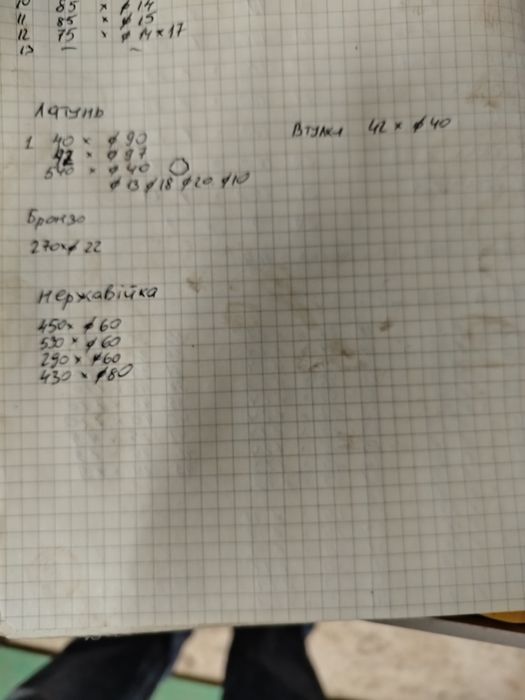 10 85 × ø 14
11 85 × ø 15
12 75 × ø 14×17
13 – –
Латунь
1 40 × ø 90
42 × ø 97
540 × ø 40
ø 13 ø 18 ø 20 ø 10
Втулки 42 × ø 40
Бронзо
270×ø 22
Нержавійка
450× ø 60
530 × ø 60
290 × ø 60
430 × ø 80